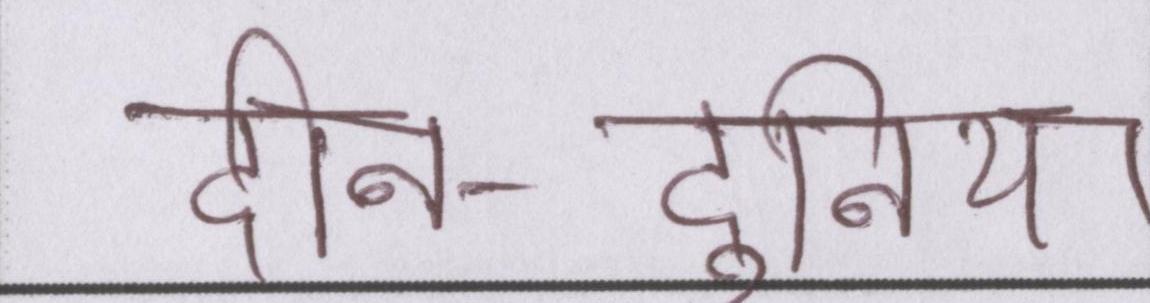 दीन- दुनिया